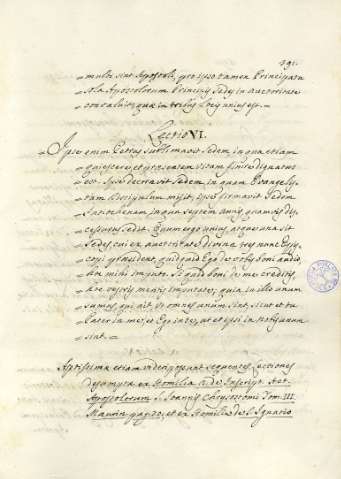 multi sint Apostoli, pro ipso tamen Principatu
sola Apostolorum Principis Sedes in auctoritate
convaluit, quæ in tribus locis unius est.
Lectio VI.
Ipse enim Petrus sublimavit Sedem, in qua etiam
quiescere, et præsentem vitam finire dignatus
est. Ipse decoravit Sedem, in quam Evangelis-
tam discipulum misit, ipse firmavit Sedem
in qua septem annis, quamvis dis-
cessurus sedit. Quum ergo unius, atque una sit
Sedes, cui ex auctoritate divina tres nunc Epis-
copi præsident, quidquid Ego de vobis boni audio,
hoc mihi imputo. Si quid boni de me creditis
hoc vestris meritis imputate, quia in illo unum
sumus, qui ait: Ut omnes unum sint, sicut et tu
Pater in me, et Ego in te, ut et ipsi in nobis unum
sint.
Aptissima etiam videri possunt sequentes Lectiones
desumptæ ex Homilia de Inscript. Act.
Apostolorum S. Joannis Chrysostomi Tom. III
Maurin. pag. 70, et ex Homilia de S. Ignatio